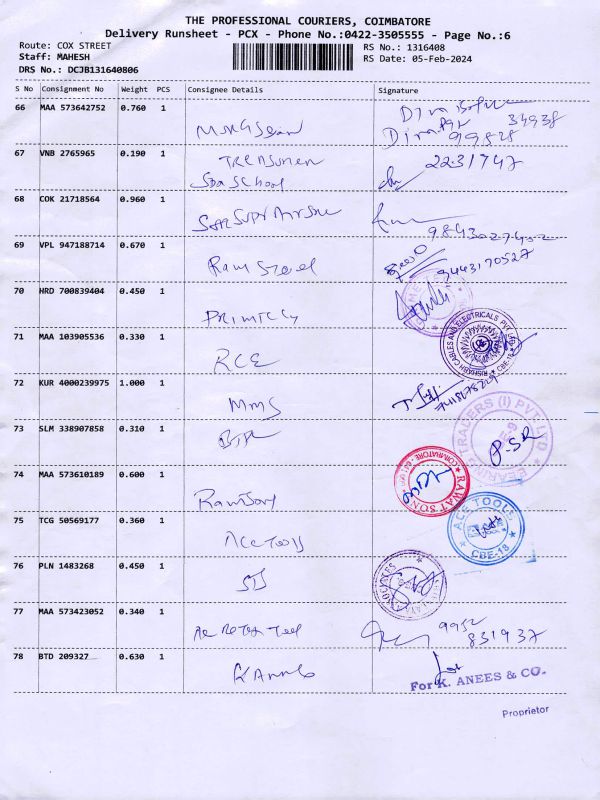 THE PROFESSIONAL COURIERS, COIMBATORE
Delivery Runsheet - PCX - Phone No.:0422-3505555 - Page No.:6
Route: COX STREET
RS No.: 1316408
Staff: MAHESH
RS Date: 05-Feb-2024
DRS No.: DCJB131640806
S No Consignment No Weight PCS Consignee Details Signature
66 MAA 573642752 0.760 1
34938
99528
67 VNB 2765965 0.190 1
2231747
SBA School
68 COK 21718564 0.960 1
9843027402
69 VPL 947188714 0.670 1
Ram Steel
9443170527
70 HRD 700839404 0.450 1
71 MAA 103905536 0.330 1
RCE
RISHABH CABLES AND ELECTRICALS PVT. LTD. CBE-18
72 KUR 4000239975 1.000 1
MMS
73 SLM 338907858 0.310 1
BTR
BEARING TRADERS (I) PVT. LTD
P-SR
74 MAA 573610189 0.600 1
RAWAT SONS
COIMBATORE - 641 001
75 TCG 50569177 0.360 1
Ace Tools
ACE TOOLS
CBE-18
76 PLN 1483268 0.450 1
77 MAA 573423052 0.340 1
9952
831937
78 BTD 209327 0.630 1
K Annes
For K. ANEES & CO.
Proprietor